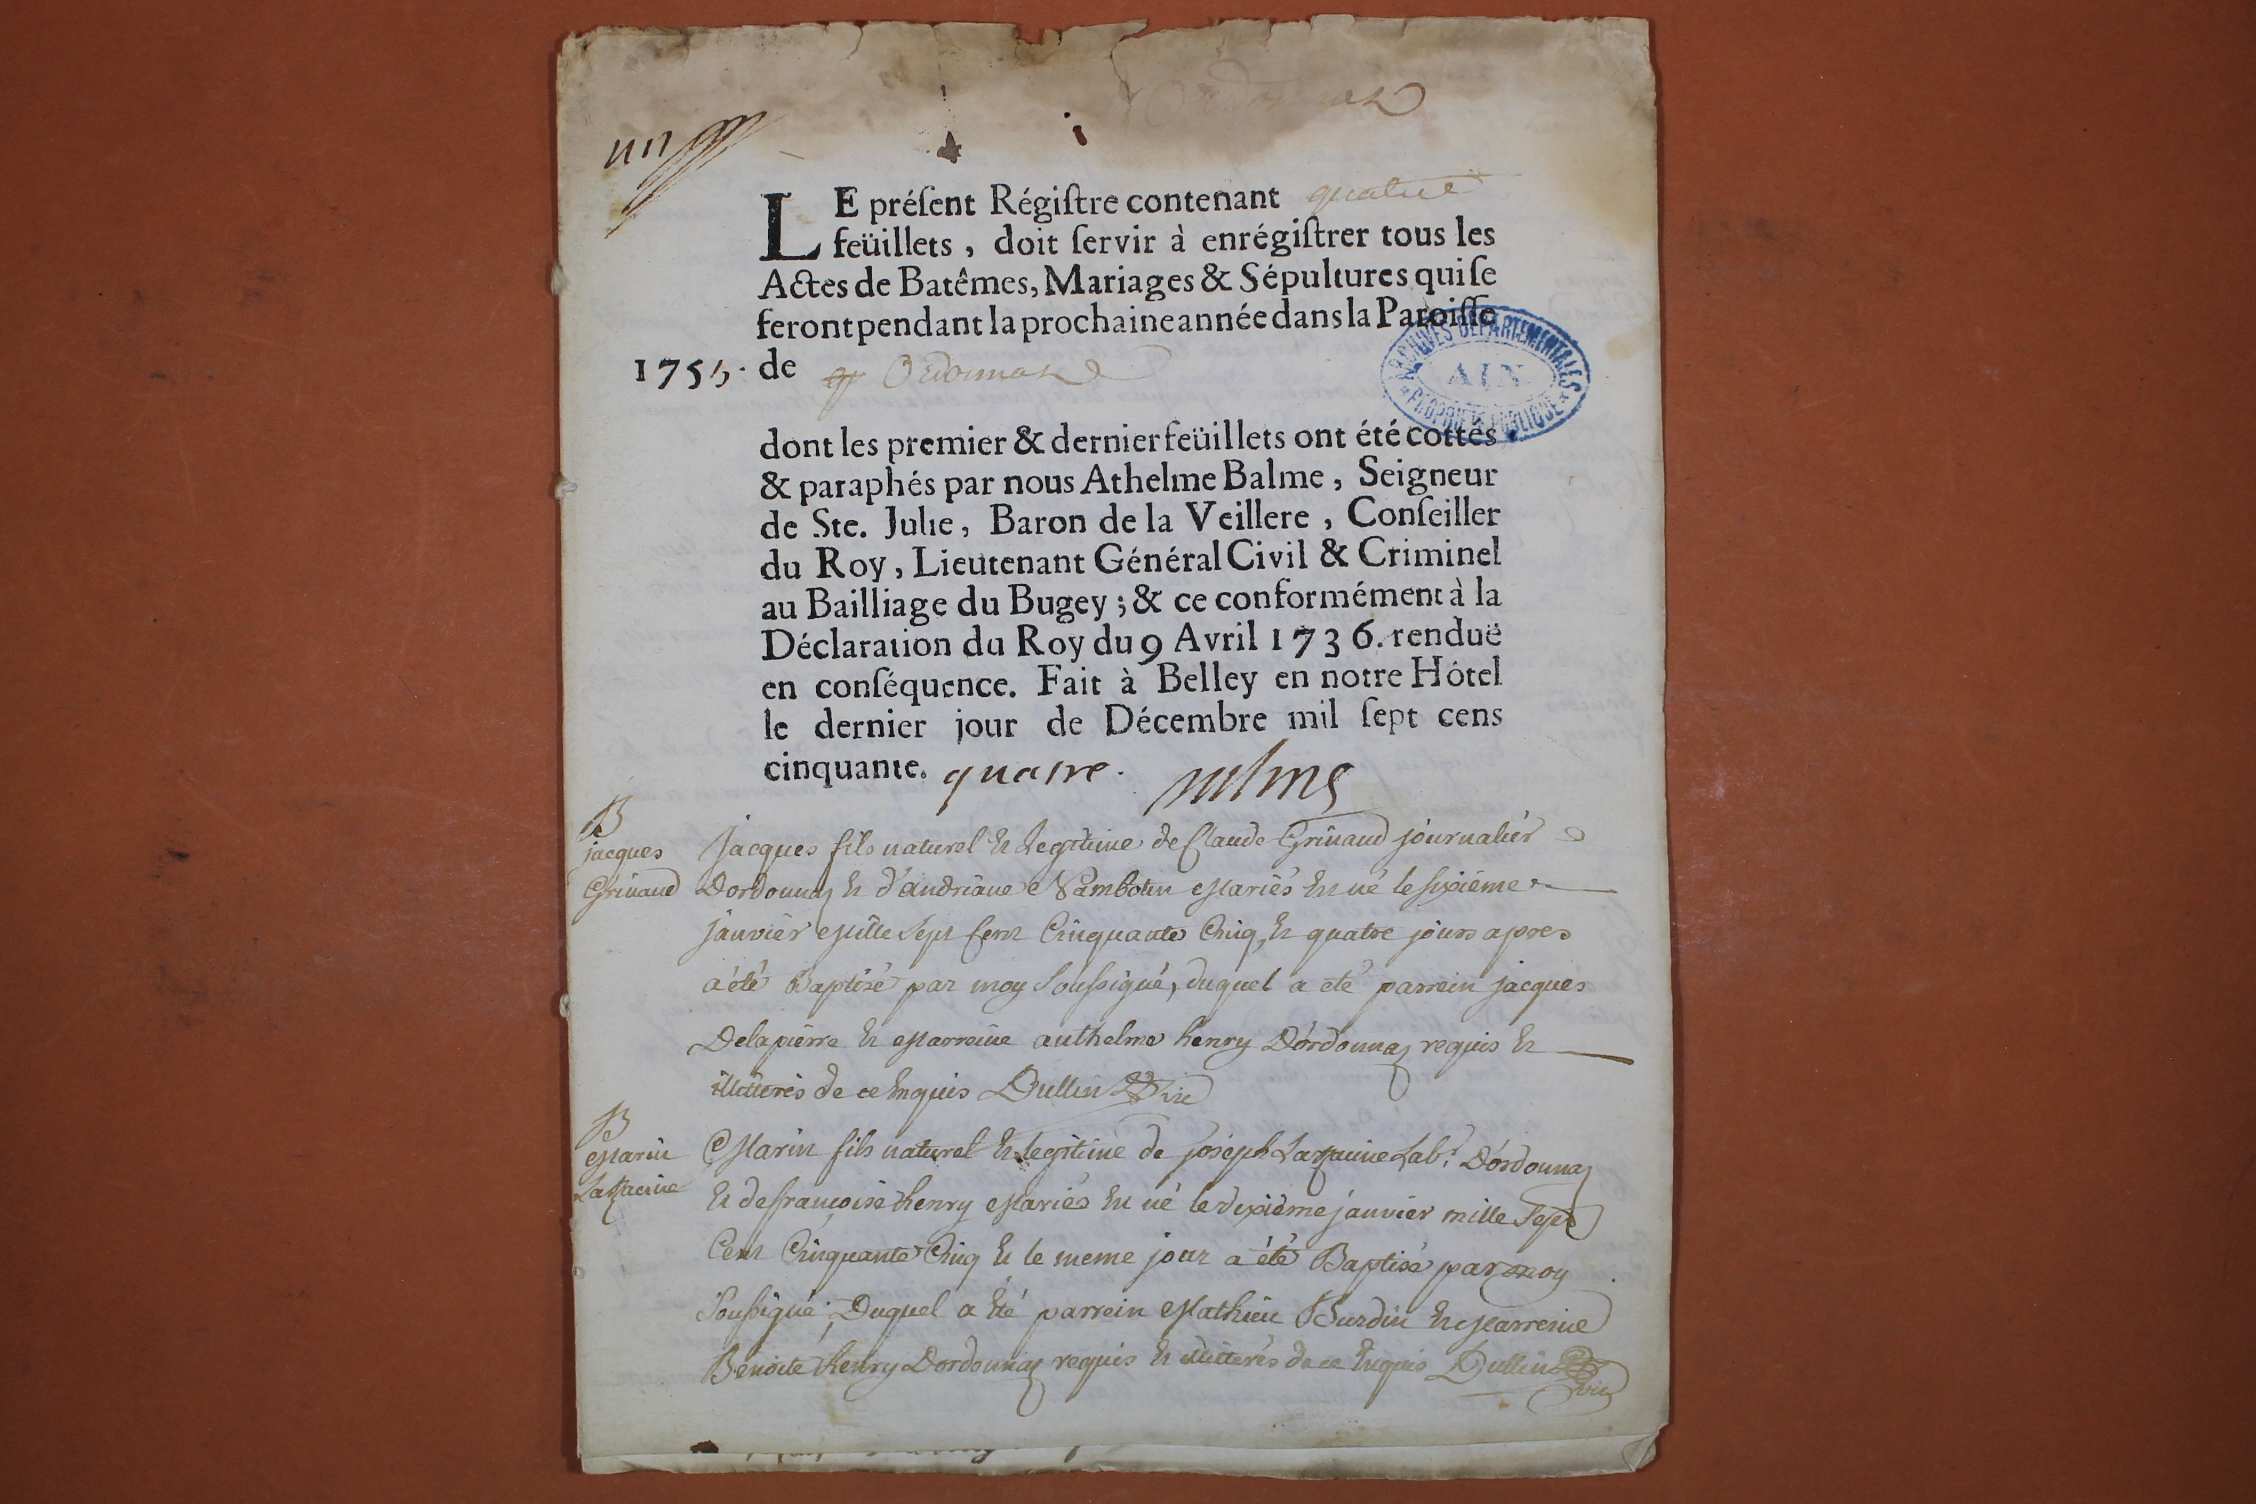 Ordonnaz
un
LE préſent Régiſtre contenant quatre
feüillets, doit ſervir à enrégiſtrer tous les
Actes de Batêmes, Mariages & Sépultures qui ſe
feront pendant la prochaine année dans la Paroiſſe
1755. de Ordonnaz
ARCHIVES DÉPARTEMENTALES
AIN
PROPRIÉTÉ PUBLIQUE
dont les premier & dernier feüillets ont été cottés
& paraphés par nous Athelme Balme, Seigneur
de Ste. Julie, Baron de la Veillere, Conſeiller
du Roy, Lieutenant Général Civil & Criminel
au Bailliage du Bugey; & ce conformément à la
Déclaration du Roy du 9 Avril 1736. renduë
en conſéquence. Fait à Belley en notre Hôtel
le dernier jour de Décembre mil ſept cens
cinquante. quatre. Balme
B
jacques
Grinand
Jacques fils naturel et Legitime de Claude Grinand journalier
Dordonnaz et d'andriane Sambotin Mariés est né le sixiéme
janvier Mille sept cent Cinquante Cinq, et quatre jours apres
a été Baptisé par moy soussigné, duquel a eté parrein jacques
Delapierre et Marreine anthelme henry D'ordonnaz requis et
illitterés de ce Enquis Dullin Vic
B
Marin
Larracine
Marin fils naturel et legitime de joseph Larracine Labr. D'ordonnaz
et de francoise henry Mariés est né le dixiéme janvier mille Sept
Cent Cinquante Cinq et le meme jour a été Baptisé par moy
Soussigné; Duquel a été parrein Mathieu Burdin et Marreine
Benoite henry Dordonnaz requis et illitterés de ce Enquis Dullin Vic